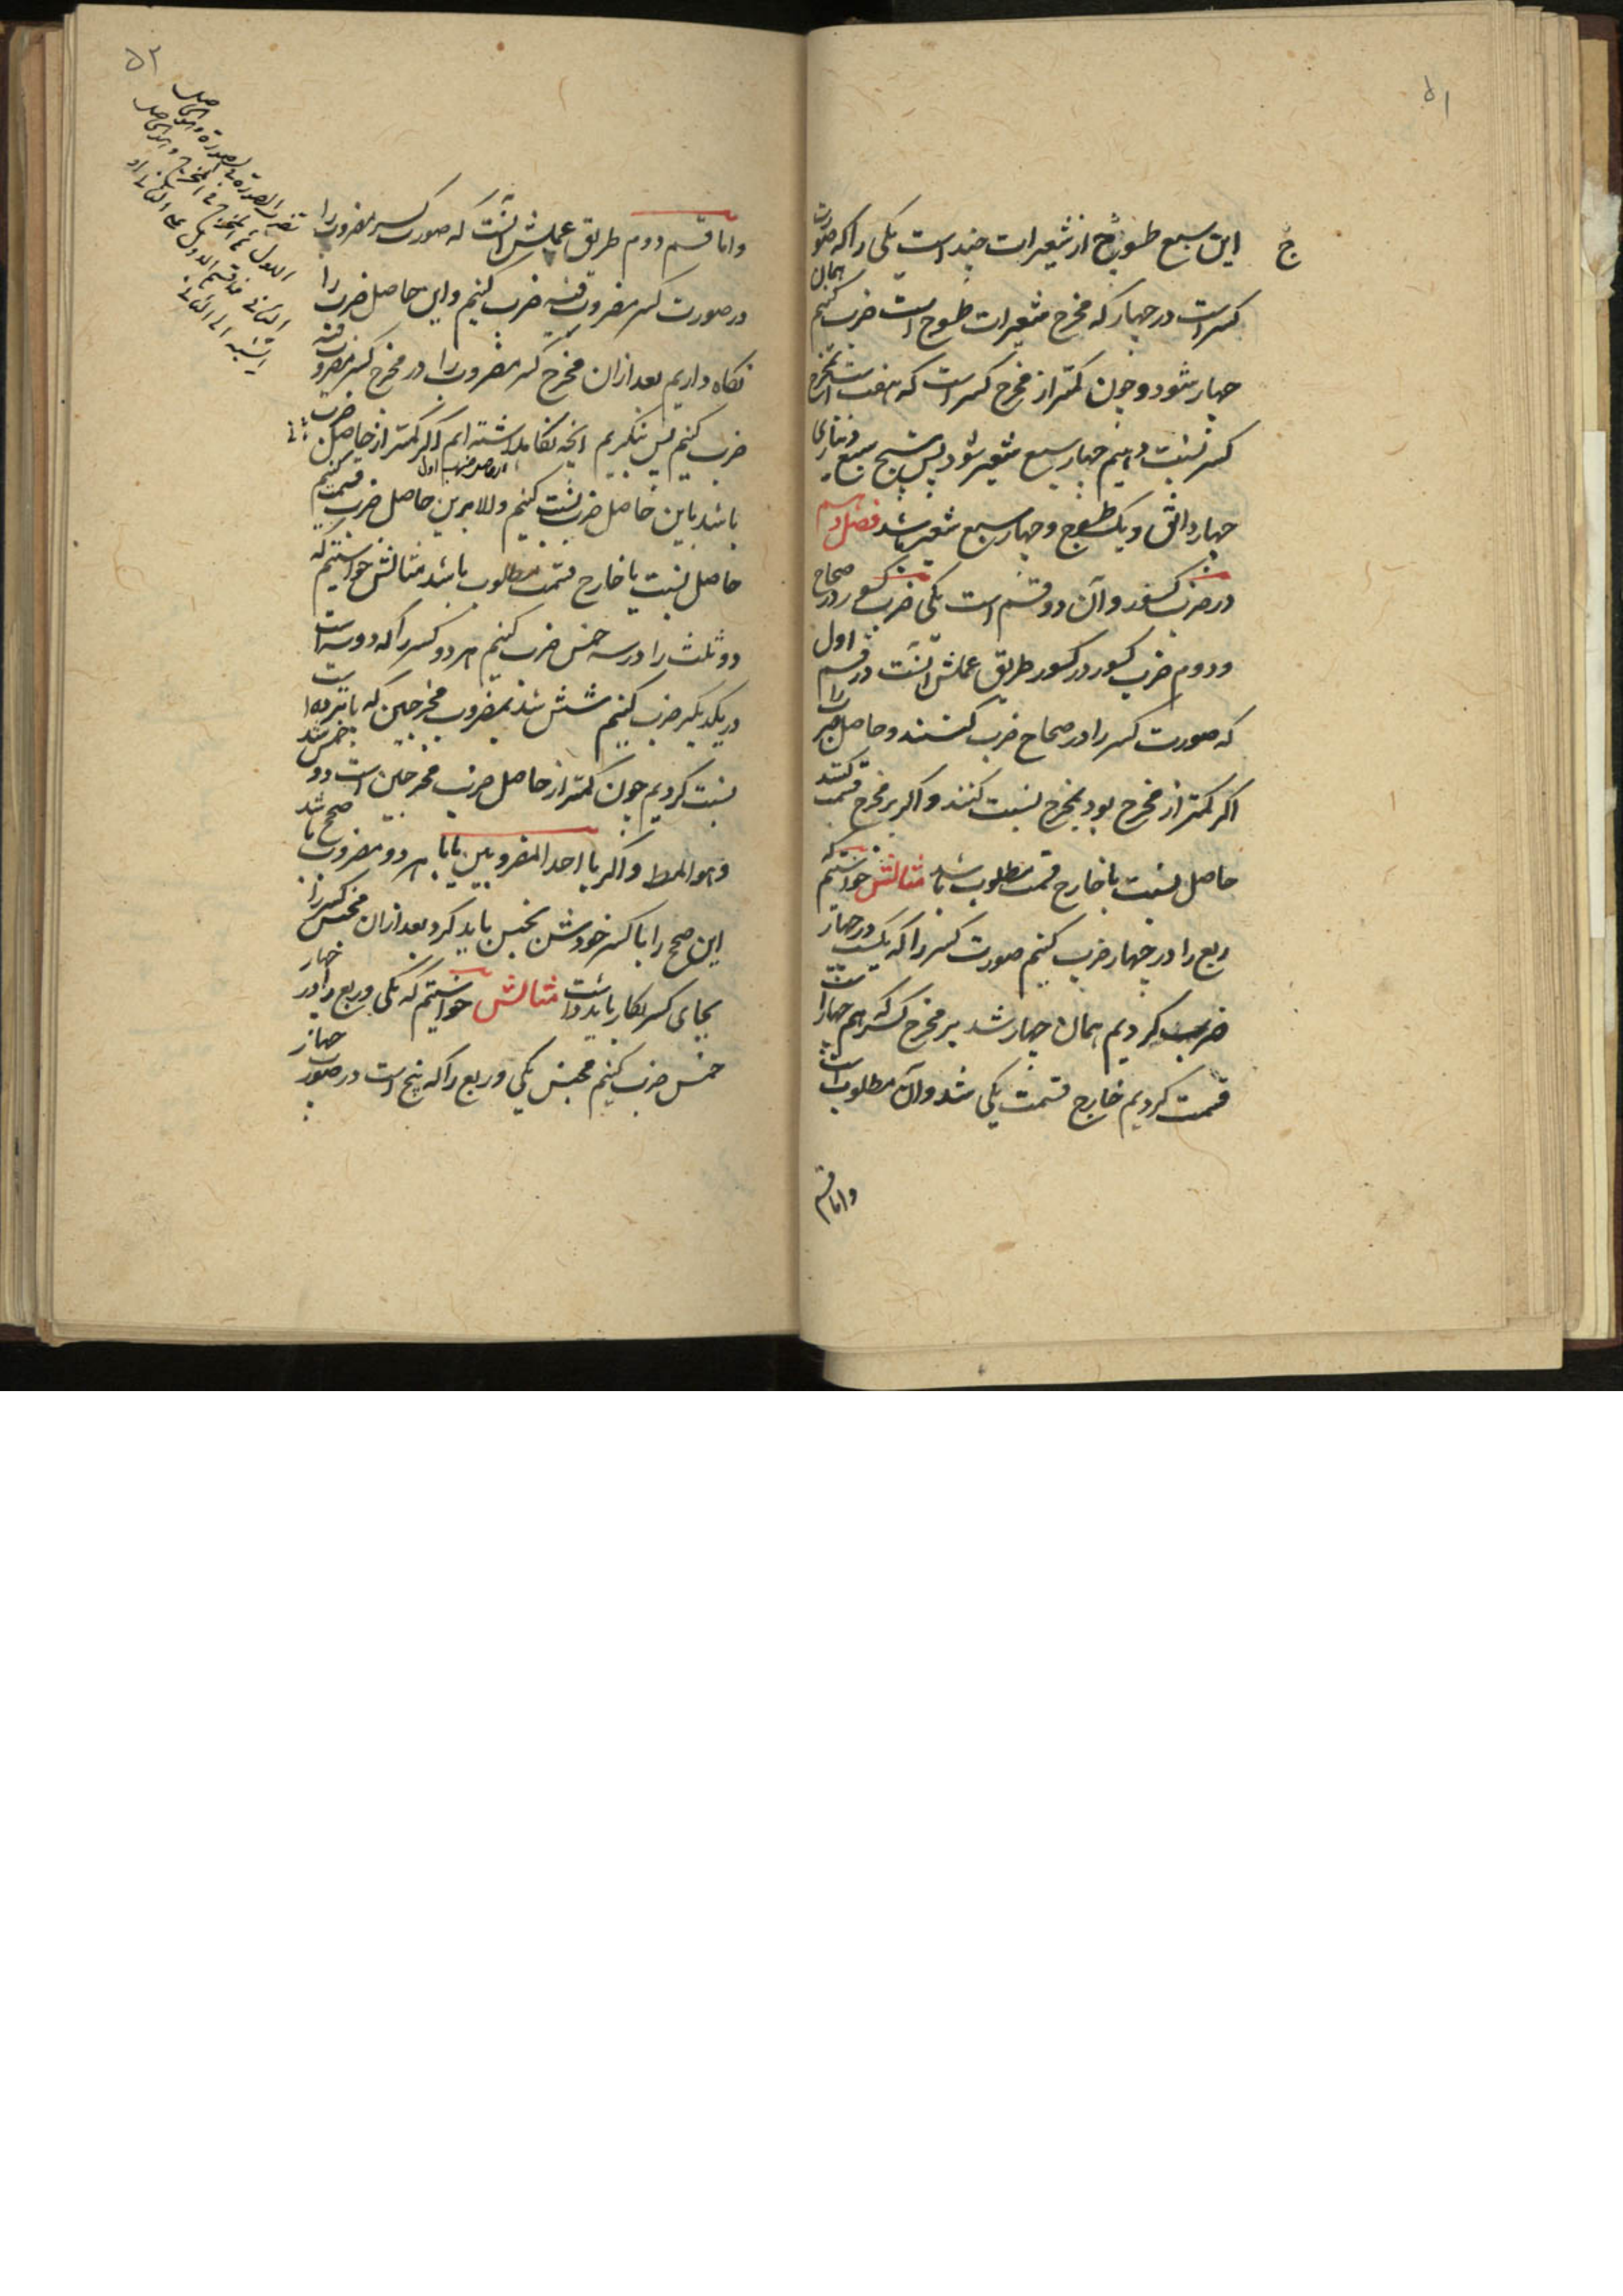 ۵۱
ج
این سبع طسوج از شعیرات چند است یکی را که صورت
کسر است در چهار که مخرج شعیرات طسوج است ضرب کنیم همان
چهار شود و چون کمتر از مخرج کسر است که هفت است بمخرج
کسر نسبت دهیم چهار سبع شعیر شود پس پنج سبع دیناری
چهار دانق و یک طسوج و چهار سبع شعیر باشد فصل دهم
در ضرب کسور و آن دو قسم است یکی ضرب کسور در صحاح
و دوم ضرب کسور در کسور طریق عملش آنست در قسم اول
که صورت کسر را در صحاح ضرب کنند و حاصل ضرب را
اگر کمتر از مخرج بود بمخرج نسبت کنند و اگر بر مخرج قسمت کنند
حاصل نسبت یا خارج قسمت مطلوب باشد مثالش خواستیم که
ربع را در چهار ضرب کنیم صورت کسر را که یکست در چهار
ضرب کردیم همان چهار شد بر مخرج کسر که هم چهار است
قسمت کردیم خارج قسمت یکی شد و آن مطلوب است
و اما قسم
۵۲
و اما قسم دوم طریق عملش آنست که صورت کسر مضروب را
در صورت کسر مضروب فیه ضرب کنیم و این حاصل ضرب را
نکاه داریم بعد از ان مخرج کسر مضروب را در مخرج کسر مضروب فیه
ضرب کنیم پس بنکریم آنچه نکاهداشته ایم اگر کمتر از حاصل ضرب
باشد باین حاصل ضرب نسبت کنیم و الا برین حاصل ضرب قسمت کنیم
حاصل نسبت یا خارج قسمت مطلوب باشد مثالش خواستیم که
دو ثلث را در سه خمس ضرب کنیم هر دو کسر را که دو و سه است
در یکدیگر ضرب کنیم شش شد بمضروب مخرجین که پانزده است
نسبت کردیم چون کمتر از حاصل ضرب مخرجین است دو خمس شد
و هو المط و اگر با احد المضروبین یا با هر دو مضروب صحیح باشد
این صحیح را با کسر خودش تجنیس باید کرد بعد از ان مجنس کسر را
بجای کسر بکار باید داشت مثالش خواستیم که یکی و ربع را در چهار
خمس ضرب کنیم مجنس یکی و ربع را که پنج است در صورت چهار